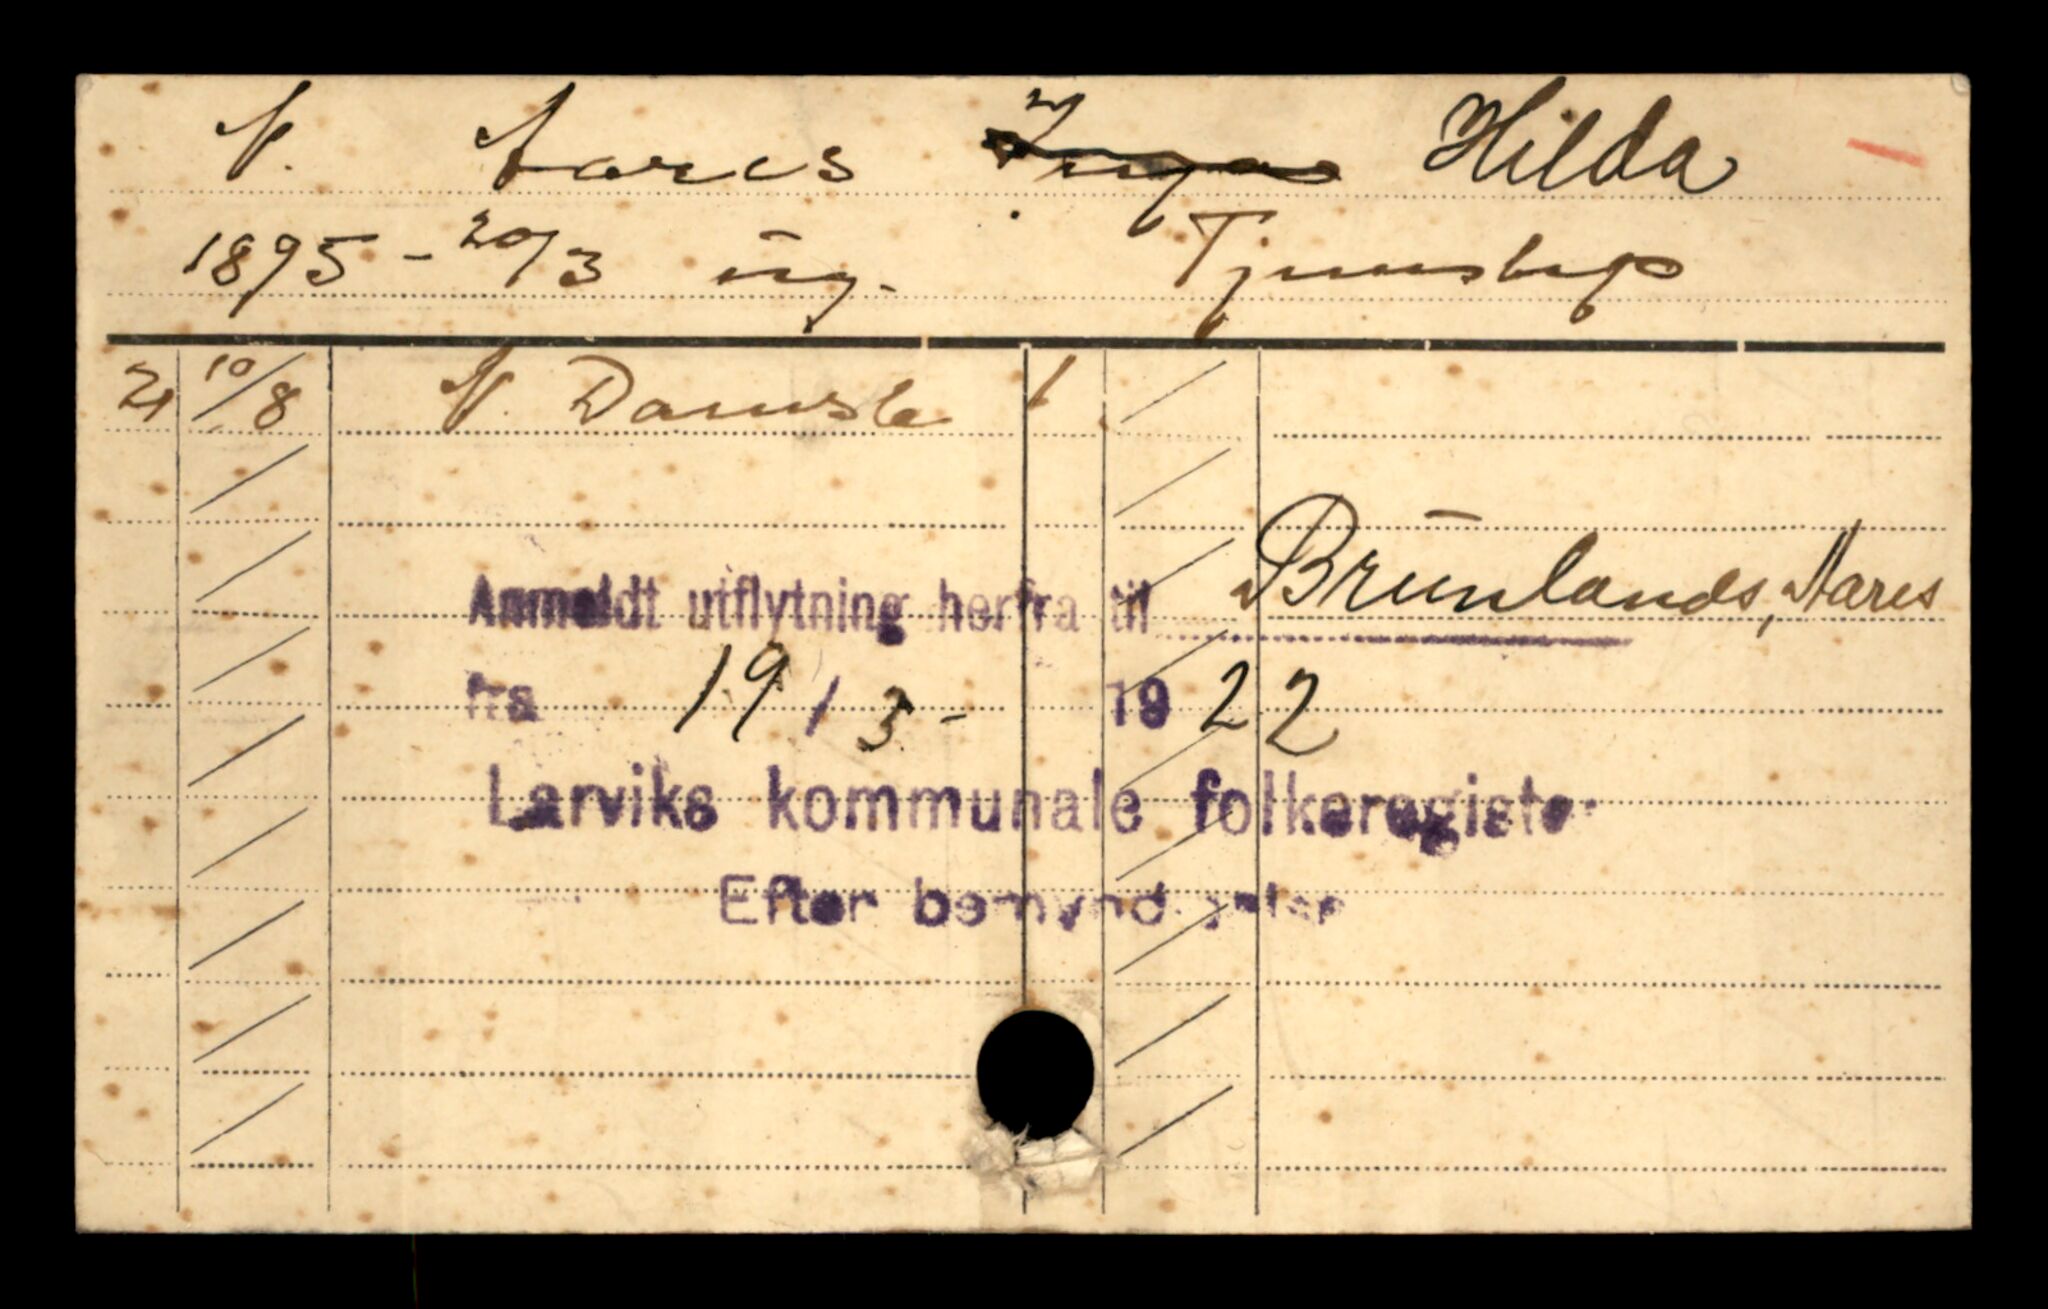 N. Aares ~~Inga~~ Hilda
1895 - 20/3 ug. Tjenestep
21 10/8 N. Damsle 1
Anmeldt utflytning herfra til Brunlands, Aares
fra 19 / 3 - 1922
Larviks kommunale folkeregister
Efter bemyndigelse